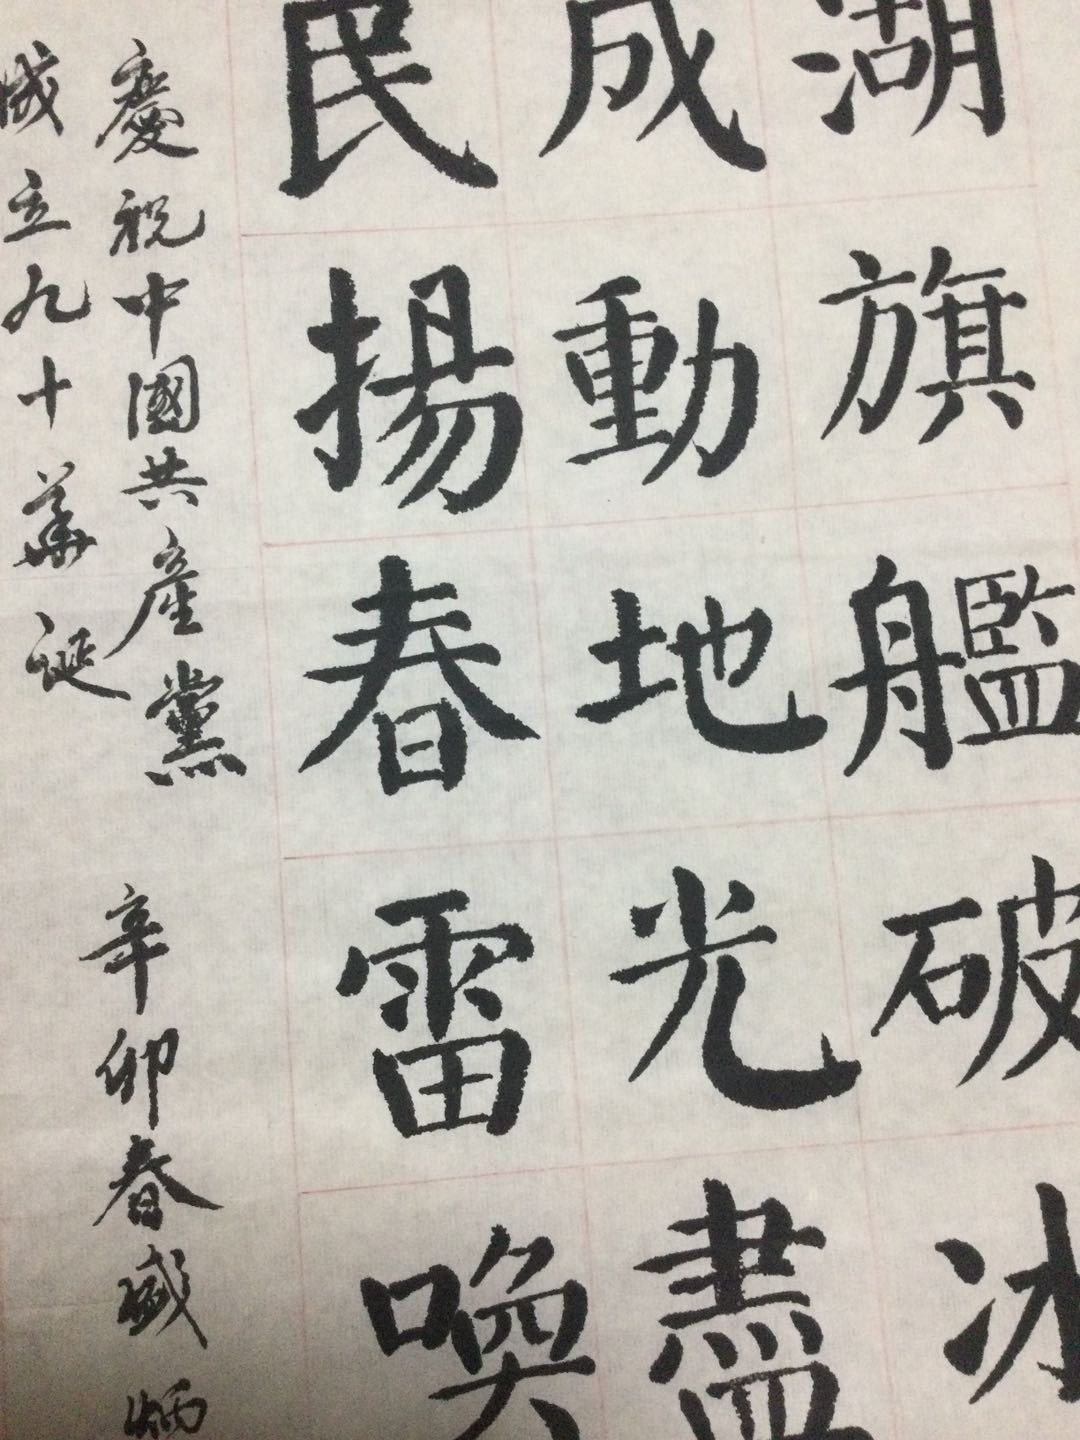 湖旗艦破冰
成動地光盡
民揚春雷喚
慶祝中國共產黨
成立九十華誕
辛卯春盛炳